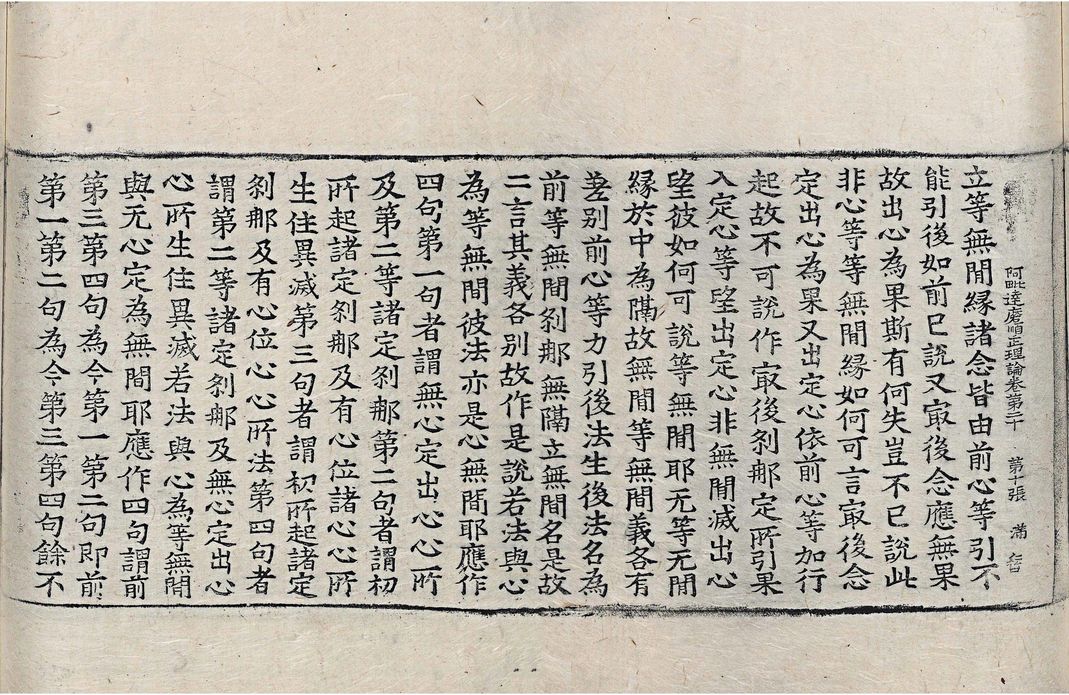 阿毗達磨順正理論卷第二十　第十張　滿
立等無間縁諸念皆由前心等引不
能引後如前已說又㝡後念應無果
故出心為果斯有何失豈不已說此
非心等等無間縁如何可言㝡後念
定出心為果又出定心依前心等加行
起故不可說作㝡後剎那定所引果
入定心等望出定心非無間滅出心
望彼如何可說等無間耶无等无間
縁於中為隔故無間等無間義各有
差別前心等力引後法生後法名為
前等無間剎那無隔立無間名是故
二言其義各別故作是說若法與心
為等無間彼法亦是心無間耶應作
四句第一句者謂無心定出心心所
及第二等諸定剎那第二句者謂初
所起諸定剎那及有心位諸心心所
生住異滅第三句者謂初所起諸定
剎那及有心位心心所法第四句者
謂第二等諸定剎那及無心定出心
心所生住異滅若法與心為等無間
與无心定為無間耶應作四句謂前
第三第四句為今第一第二句即前
第一第二句為今第三第四句餘不